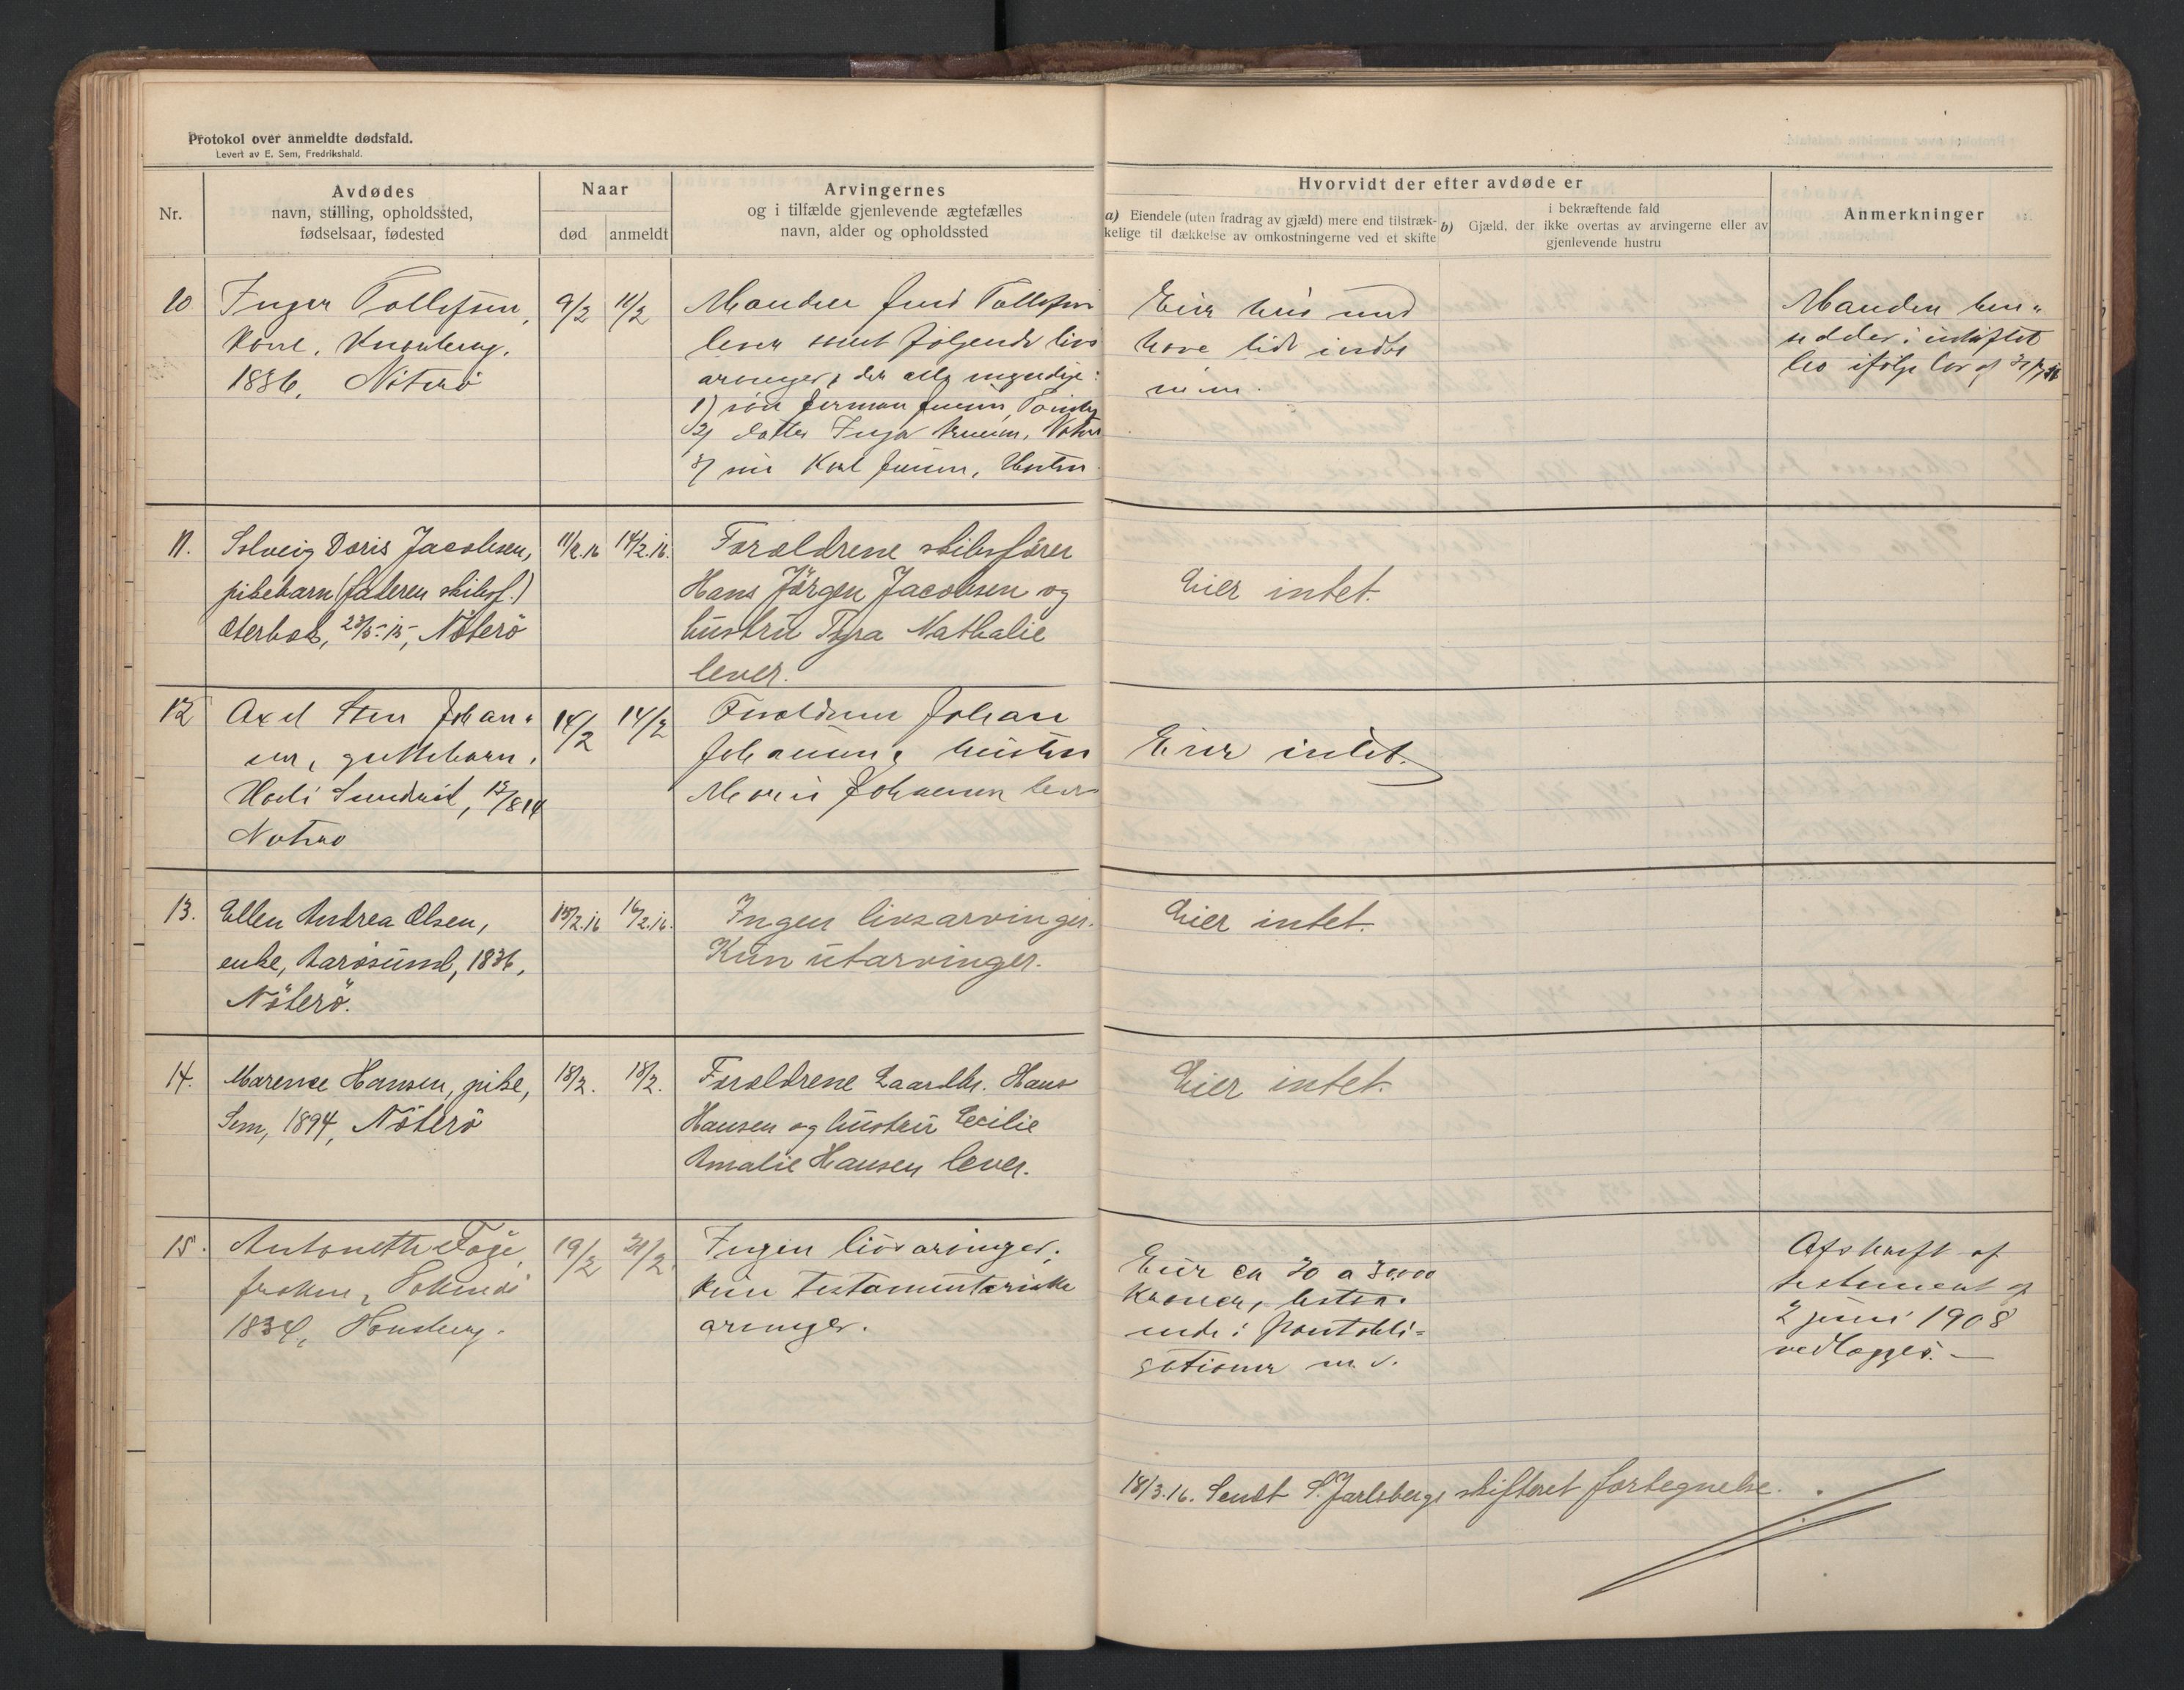 Protokol over anmeldte dødsfald.
Levert av E. Sem, Fredrikshald.
Nr.
Avdødes
navn, stilling, opholdssted,
fødselsaar, fødested
Naar
død
anmeldt
Arvingernes
og i tilfælde gjenlevende ægtefælles
navn, alder og opholdssted
Hvorvidt der efter avdøde er
a) Eiendele (uten fradrag av gjæld) mere end tilstræk-
kelige til dækkelse av omkostningerne ved et skifte
i bekræftende fald
b) Gjæld, der ikke overtas av arvingerne eller av
gjenlevende hustru
Anmerkninger
10
Inger Tollefsen,
kone,
1836, Nøterø
9/2
11/2
Manden Tollefsen
lever samt følgende livs
arvinger, der alle myndige:
1) søn Herman Jensen,
2) datter Inga
3) søn Karl Jensen, Horten
Eier hus med
have lidt indbo
m.m.
Manden hen-
sidder i uskiftet
bo ifølge lov af
11.
Solveig Doris Jacobsen,
pikebarn (faderen skibsf.)
Oterbæk, 23/5-15, Nöterö
11/2.16
14/2.16.
Foreldrene skibsfører
Hans Jörgen Jacobsen og
hustru Tyra Nathalie
lever.
Eier intet.
12
Axel Sten Johan-
sen, guttebarn,
12/8 14
Nøterø
14/2
14/2
Foreldrene Johan
Johansen, hustru
Marie Johansen lever
Eier intet.
13.
Ellen Andrea Olsen,
enke, Aarøsund, 1836,
Nöterö.
15/2.16
16/2.16.
Ingen livsarvinger.
Kun utarvinger.
Eier intet.
14.
Marense Hansen, pike,
Sem, 1894, Nöterö
18/2.
18/2.
Foreldrene Gaardbr. Hans
Hansen og hustru Cecilie
Amalie Hansen lever.
Eier intet.
15.
Antonette Føge,
frøken,
1834, Tønsberg.
19/2
21/2
Ingen livsarvinger,
kun testamentariske
arvinger.
Eier ca 20 a 30,000
Kroner, bestaa-
ende i Pantobli-
gationer m.v.
Afskrift af
testament af
2 juni 1908
vedlægges. —
18/3.16. Sendt S. Jarlsbergs skifteret fortegnelse.